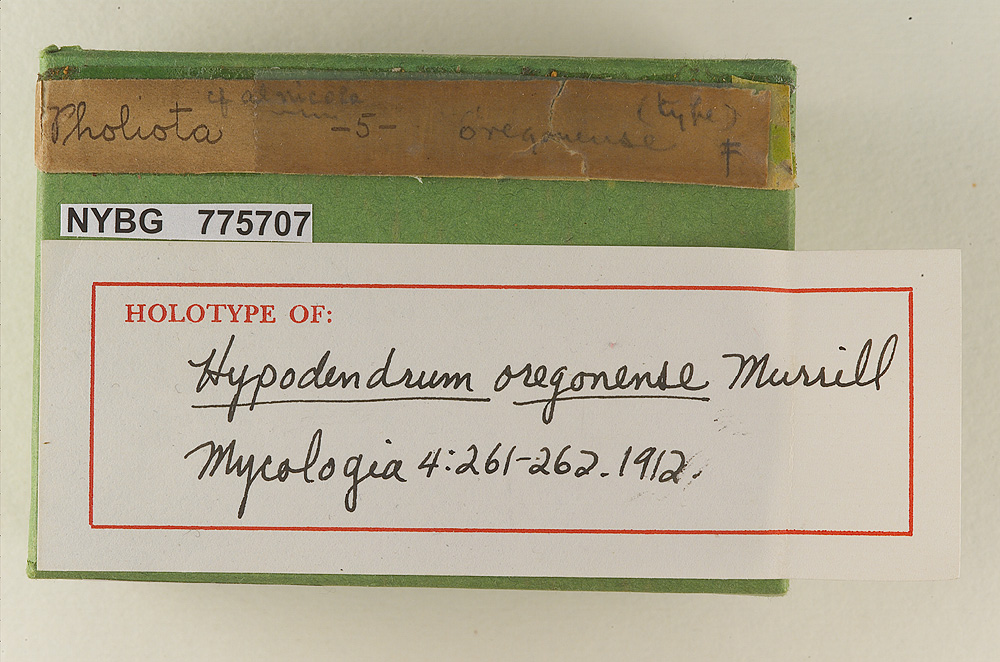 cf alnicola
Pholiota -5- oregonense (type)
F
NYBG 775707
HOLOTYPE OF:
Hypodendrum oregonense Murrill
Mycologia 4:261-262. 1912.